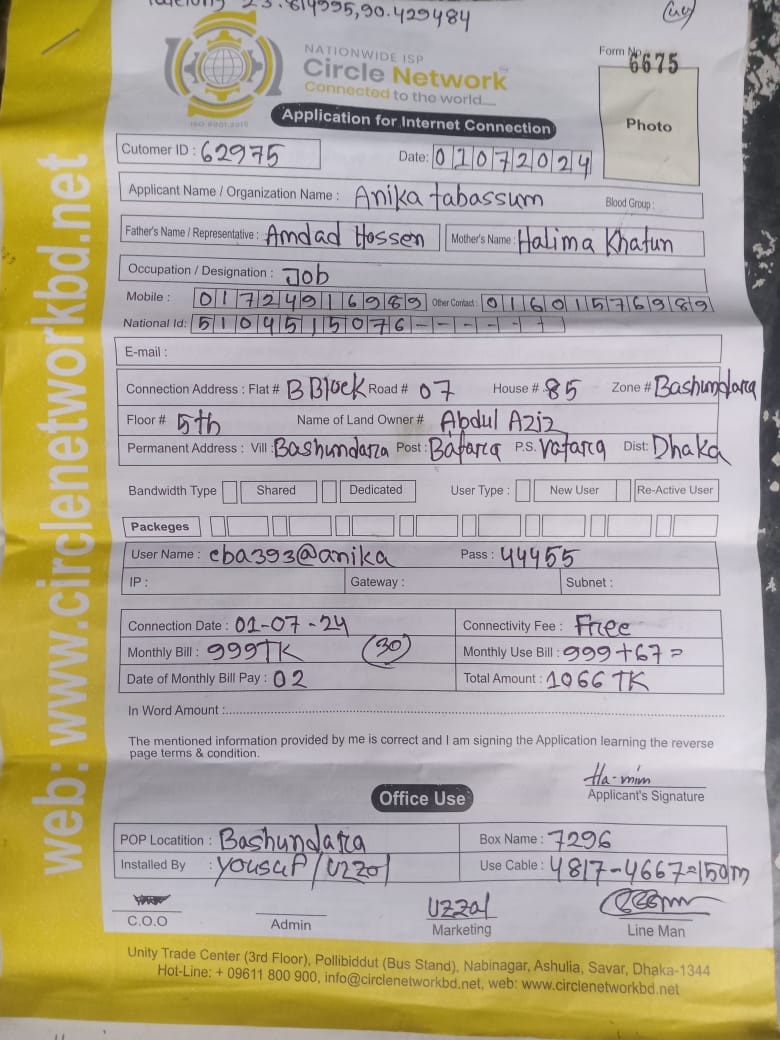 23.814995,90.429484
NATIONWIDE ISP
Circle Network
Connected to the world....
ISO 9001:2015
Form No
6675
Photo
Application for Internet Connection
Cutomer ID : 62975
Date: 01072024
Applicant Name / Organization Name : Anika tabassum Blood Group :
Father's Name / Representative : Amdad Hossen Mother's Name : Halima Khatun
Occupation / Designation : Job
Mobile : 01724916989 Other Contact : 01601576989
National Id: 5104515076-------
E-mail :
Connection Address : Flat # B Block Road # 07 House # 85 Zone # Bashundara
Floor # 5th Name of Land Owner # Abdul Aziz
Permanent Address : Vill : Bashundara Post : Batara P.S. Vatara Dist: Dhaka
Bandwidth Type Shared Dedicated User Type : New User Re-Active User
Packeges
User Name : cba393@anika Pass : 44455
IP : Gateway : Subnet :
Connection Date : 01-07-24 Connectivity Fee : Free
Monthly Bill : 999TK (30) Monthly Use Bill : 999+67=
Date of Monthly Bill Pay : 02 Total Amount : 1066 TK
In Word Amount :
The mentioned information provided by me is correct and I am signing the Application learning the reverse
page terms & condition.
Ha-mim
Applicant's Signature
Office Use
POP Locatition : Bashundara Box Name : 7296
Installed By : Yousuf/Uzzol Use Cable : 4817-4667=150m
C.O.O
Admin
Uzzal
Marketing
Line Man
Unity Trade Center (3rd Floor), Pollibiddut (Bus Stand), Nabinagar, Ashulia, Savar, Dhaka-1344
Hot-Line: + 09611 800 900, info@circlenetworkbd.net, web: www.circlenetworkbd.net
web: www.circlenetworkbd.net